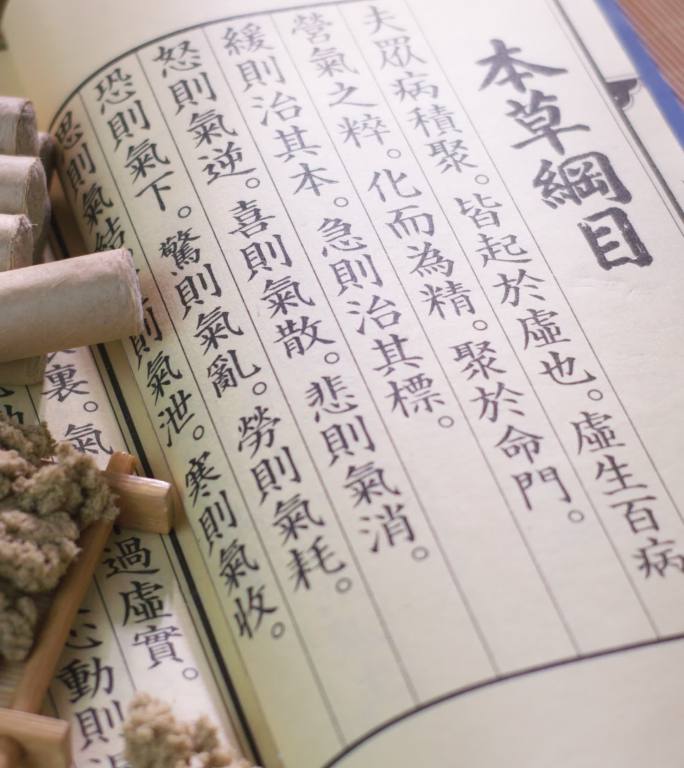 本草綱目
夫眾病積聚。皆起於虛也。虛生百病
營氣之粹。化而為精。聚於命門。
緩則治其本。急則治其標。
怒則氣逆。喜則氣散。悲則氣消。
恐則氣下。驚則氣亂。勞則氣耗。
思則氣結 則氣泄。寒則氣收。
裏。氣
過虛實。
動則